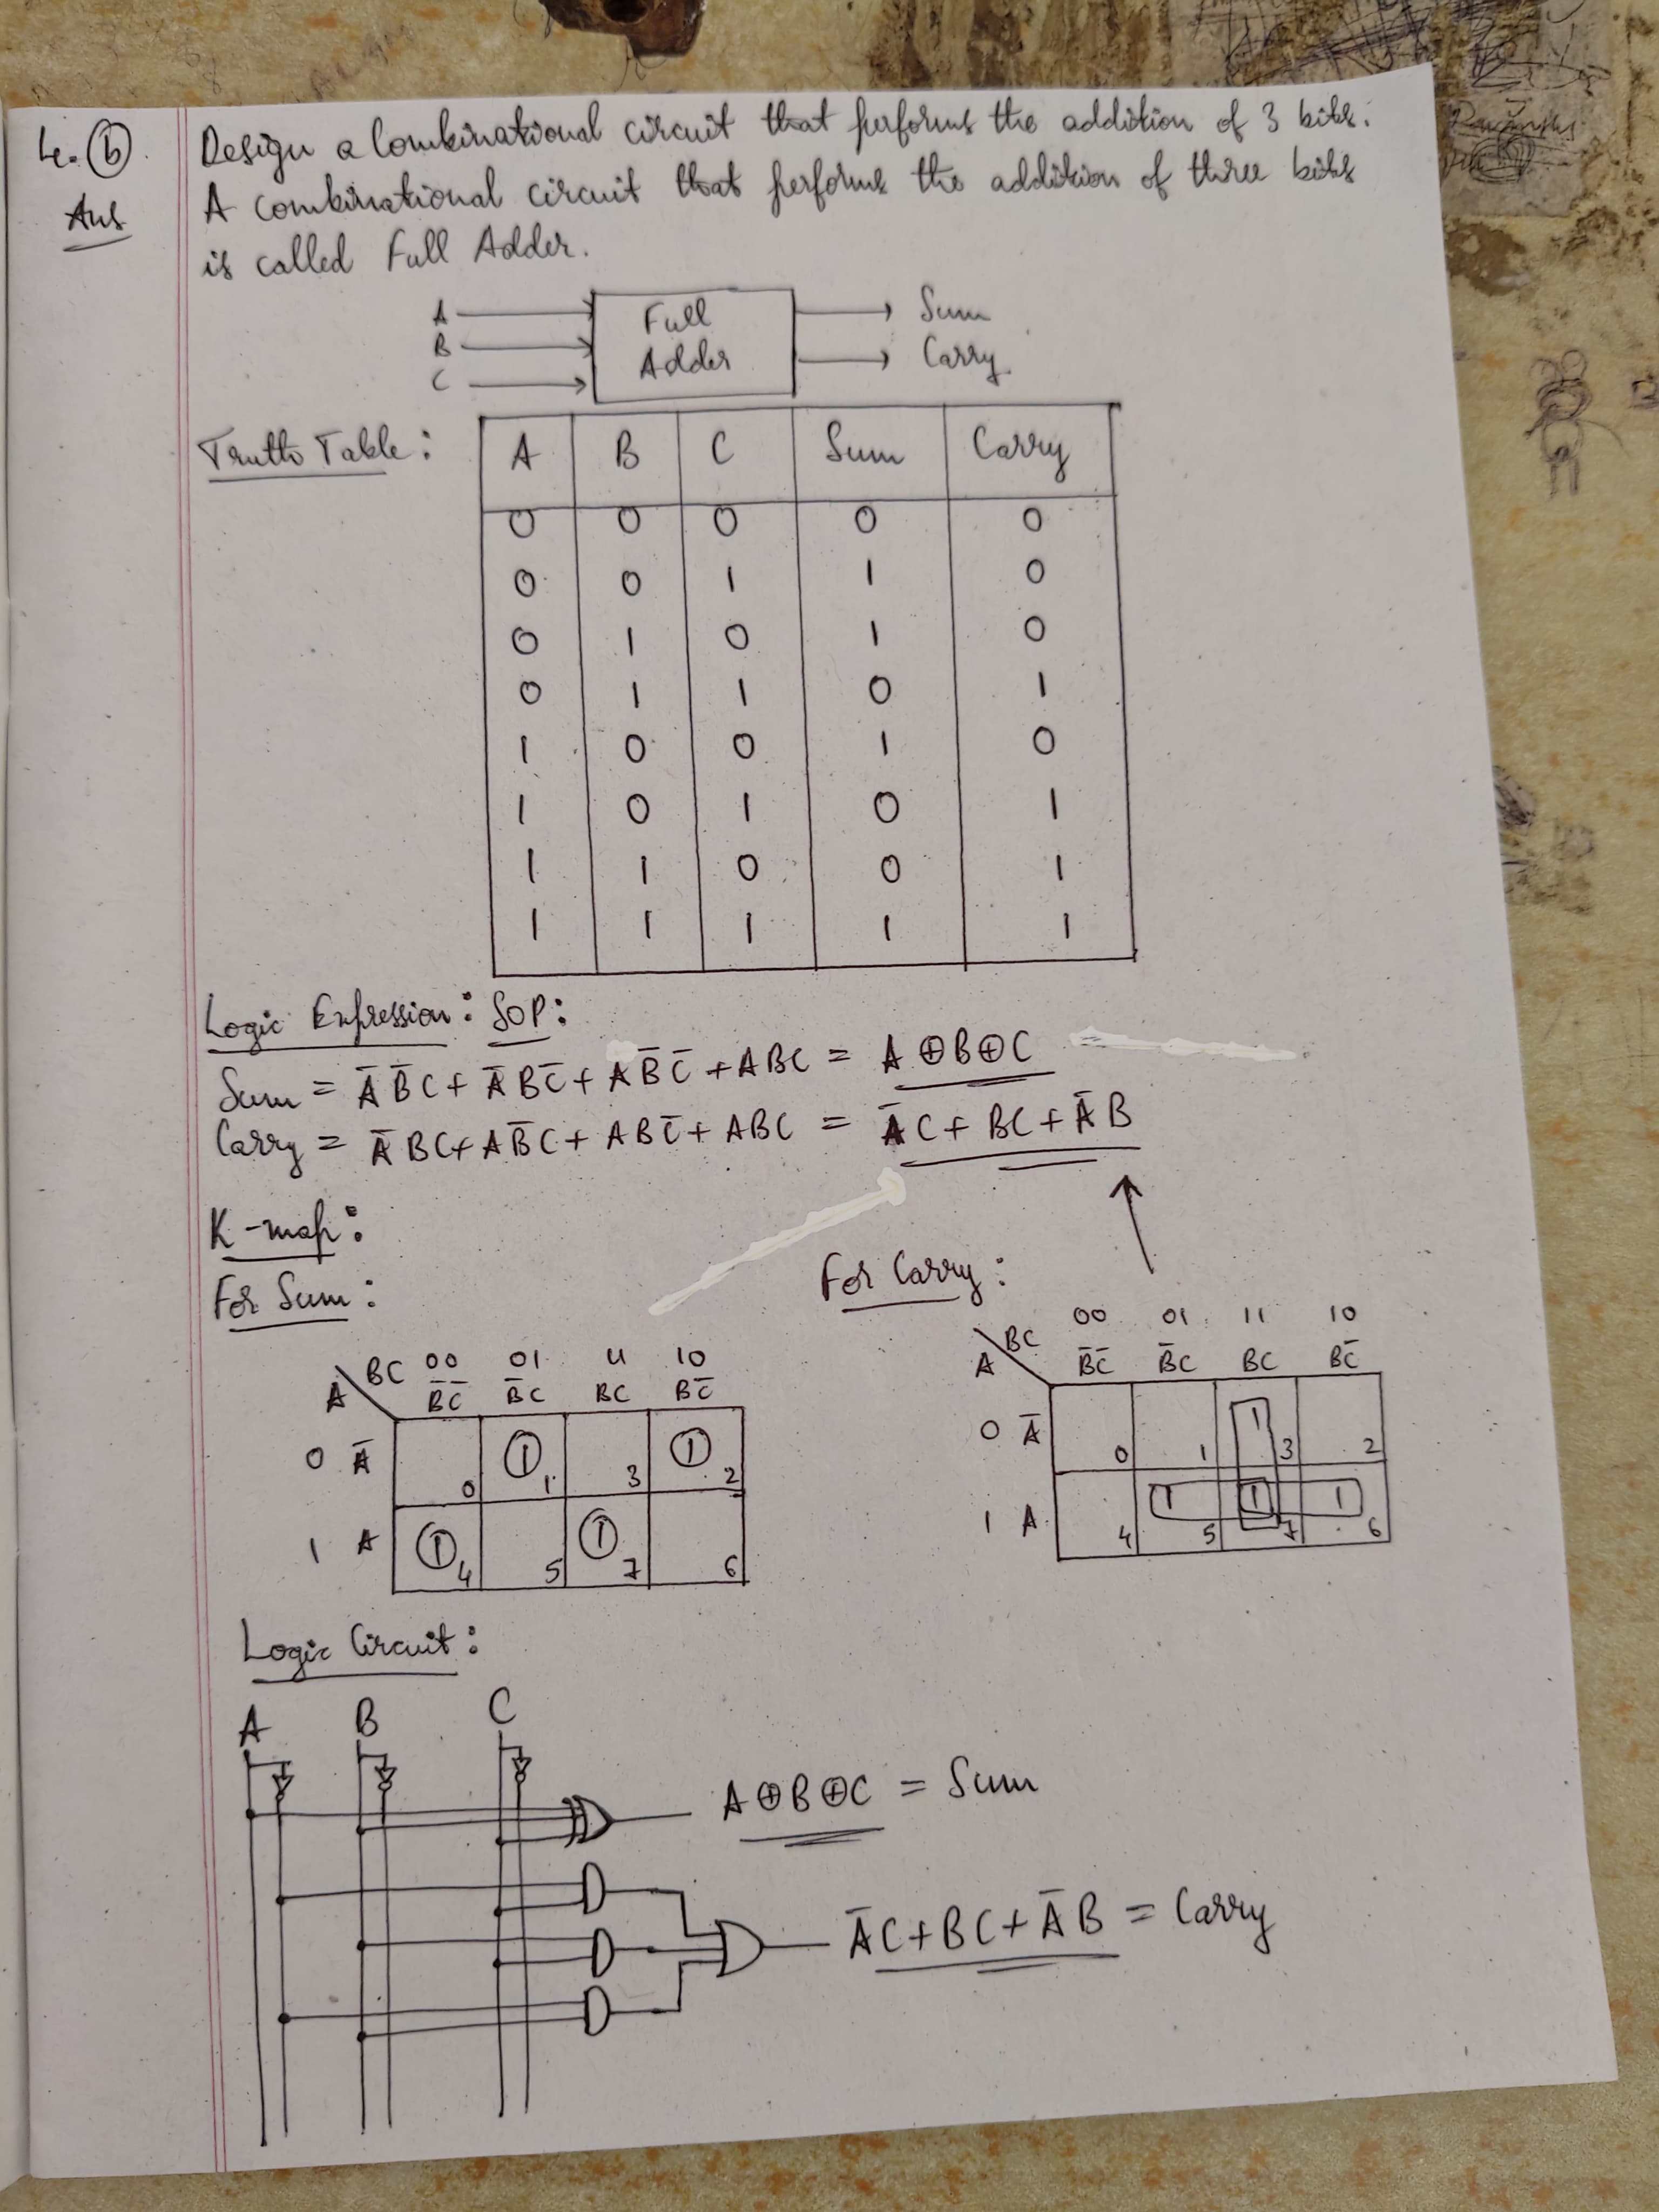 4. (b) Design a Combinational circuit that performs the addition of 3 bits.
Ans A combinational circuit that performs the addition of three bits
is called Full Adder.
A
B
C
Full
Adder
Sum
Carry
Truth Table:
A B C Sum Carry
0 0 0 0 0
0 0 1 1 0
0 1 0 1 0
0 1 1 0 1
1 0 0 1 0
1 0 1 0 1
1 1 0 0 1
1 1 1 1 1
Logic Expression: SOP:
Sum = A̅ B̅ C + A̅ B C̅ + A B̅ C̅ + A B C = A ⊕ B ⊕ C
Carry = A̅ B C + A B̅ C + A B C̅ + A B C = A̅ C + B C + A̅ B
K-map:
For Sum:
BC 00 01 11 10
A B̅C̅ B̅C BC BC̅
0 A̅ 0 1 1 3 1 2
1 A 1 4 5 1 7 6
For Carry:
BC 00 01 11 10
A B̅C̅ B̅C BC BC̅
0 A̅ 0 1 1 3 2
1 A 4 1 5 1 7 1 6
Logic Circuit:
A B C
A ⊕ B ⊕ C = Sum
A̅ C + B C + A̅ B = Carry